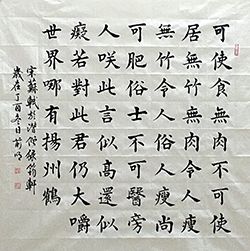 可使食無肉不可使
居無竹無肉令人瘦
無竹令人俗人瘦尚
可肥俗士不可醫傍
人咲此言似高還似
癡若對此君仍大嚼
世界哪有揚州鶴
宋蘇軾於潛僧綠筠軒
歲在丁酉冬日前明